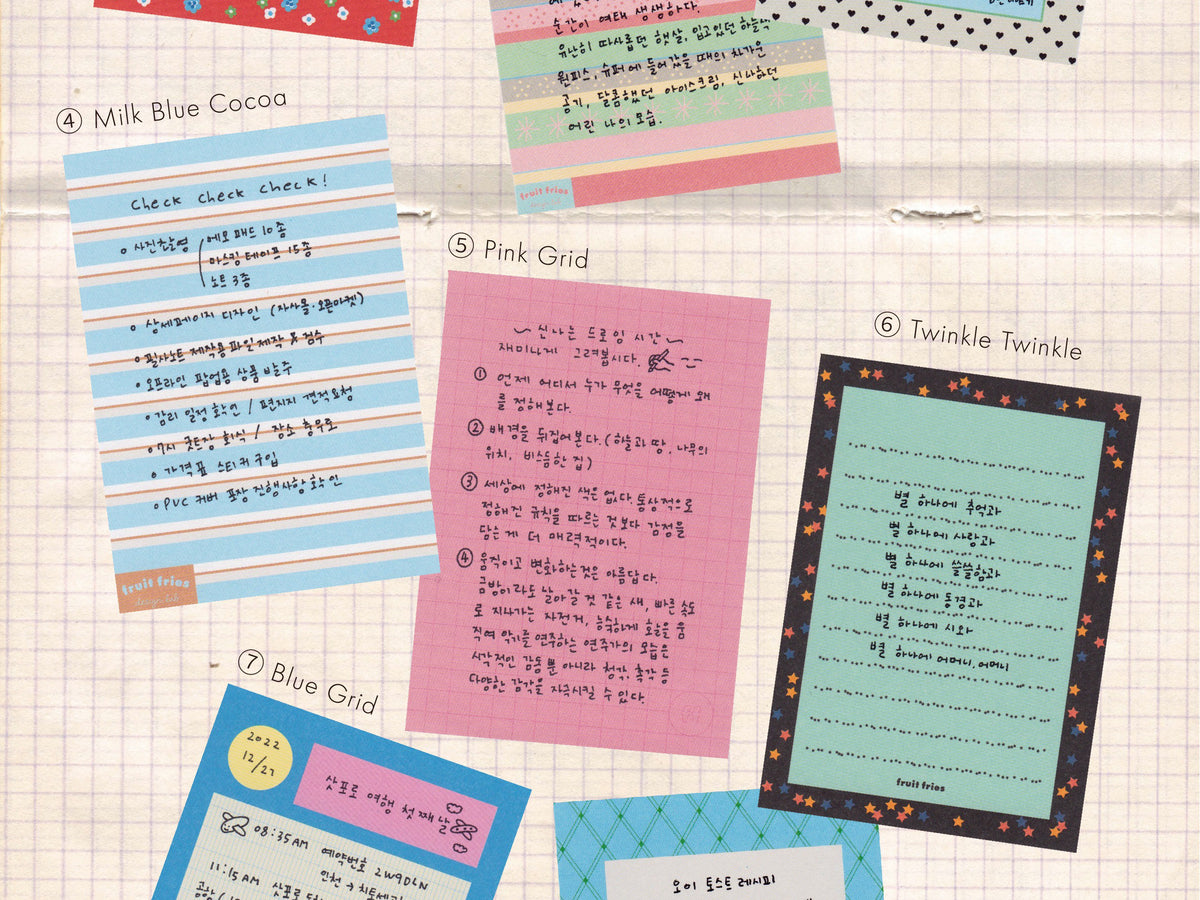 순간이 여태 생생하다.
유난히 따사롭던 햇살, 입고있던 하늘색
원피스, 슈퍼에 들어갔을 때의 차가운
공기, 달콤했던 아이스크림, 신나하던
어린 나의 모습.
fruit fries
④ Milk Blue Cocoa
check check check!
사진촬영
에모패드 10종
마스킹 테이프 15종
노트 3종
상세페이지 디자인 (자사몰·오픈마켓)
필사노트 제작용 파일 제작 & 검수
오프라인 팝업용 상품 발주
감리 일정 확인 / 편지지 견적요청
7시 굿트장 회식 / 장소 충무로
가격표 스티커 구입
PVC 커버 포장 진행사항 확인
fruit fries
design lab
⑤ Pink Grid
신나는 드로잉 시간
재미나게 그려봅시다.
① 언제 어디서 누가 무엇을 어떻게 왜
를 정해본다.
② 배경을 뒤집어본다. (하늘과 땅, 나무의
위치, 비스듬한 집)
③ 세상에 정해진 색은 없다. 통상적으로
정해진 규칙을 따르는 것보다 감정을
담는게 더 매력적이다.
④ 움직이고 변화하는것은 아름답다.
금방이라도 날아갈 것 같은 새, 빠른 속도
로 지나가는 자전거, 능숙하게 화살을 움
직여 악기를 연주하는 연주가의 모습은
시각적인 감동뿐 아니라 청각, 촉각 등
다양한 감각을 자극시킬 수 있다.
⑥ Twinkle Twinkle
별 하나에 추억과
별 하나에 사랑과
별 하나에 쓸쓸함과
별 하나에 동경과
별 하나에 시와
별 하나에 어머니, 어머니
fruit fries
⑦ Blue Grid
2022
12/27
삿포로 여행 첫째날
08:35AM 예약번호 2W9DLN
인천 → 치토세
11:15AM 삿포로
오이 토스트 레시피